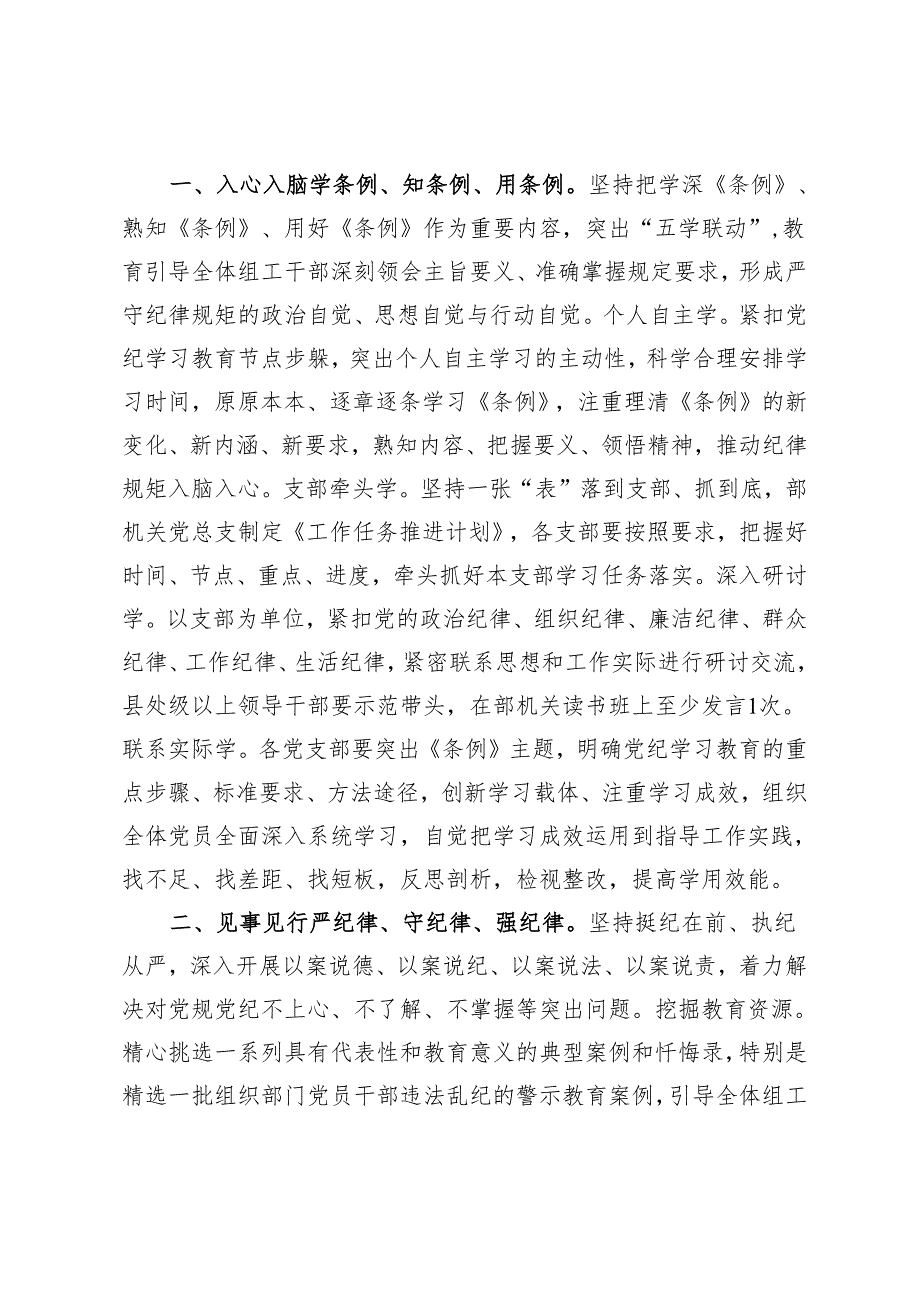 一、入心入脑学条例、知条例、用条例。坚持把学深《条例》、
熟知《条例》、用好《条例》作为重要内容，突出“五学联动”,教
育引导全体组工干部深刻领会主旨要义、准确掌握规定要求，形成严
守纪律规矩的政治自觉、思想自觉与行动自觉。个人自主学。紧扣党
纪学习教育节点步躲，突出个人自主学习的主动性，科学合理安排学
习时间，原原本本、逐章逐条学习《条例》，注重理清《条例》的新
变化、新内涵、新要求，熟知内容、把握要义、领悟精神，推动纪律
规矩入脑入心。支部牵头学。坚持一张“表”落到支部、抓到底，部
机关党总支制定《工作任务推进计划》，各支部要按照要求，把握好
时间、节点、重点、进度，牵头抓好本支部学习任务落实。深入研讨
学。以支部为单位，紧扣党的政治纪律、组织纪律、廉洁纪律、群众
纪律、工作纪律、生活纪律，紧密联系思想和工作实际进行研讨交流，
县处级以上领导干部要示范带头，在部机关读书班上至少发言1次。
联系实际学。各党支部要突出《条例》主题，明确党纪学习教育的重
点步骤、标准要求、方法途径，创新学习载体、注重学习成效，组织
全体党员全面深入系统学习，自觉把学习成效运用到指导工作实践，
找不足、找差距、找短板，反思剖析，检视整改，提高学用效能。
二、见事见行严纪律、守纪律、强纪律。坚持挺纪在前、执纪
从严，深入开展以案说德、以案说纪、以案说法、以案说责，着力解
决对党规党纪不上心、不了解、不掌握等突出问题。挖掘教育资源。
精心挑选一系列具有代表性和教育意义的典型案例和忏悔录，特别是
精选一批组织部门党员干部违法乱纪的警示教育案例，引导全体组工